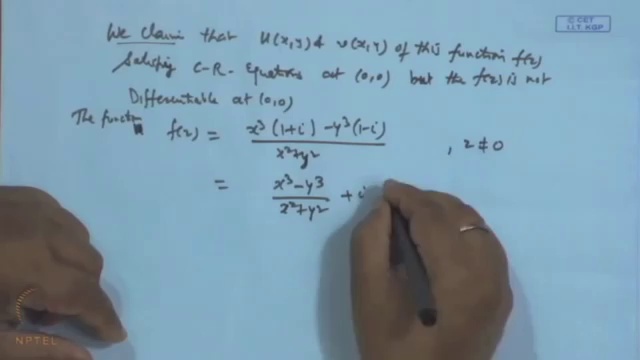 © CET
I.I.T. KGP
We claim that u(x,y) & v(x,y) of this function f(z)
Satisfies C-R-Equations at (0,0) but the f(z) is not
Differentiable at (0,0)
The funct
f(z) = x³(1+i) - y³(1-i) / x²+y² , z ≠ 0
= x³-y³ / x²+y² + i
NPTEL